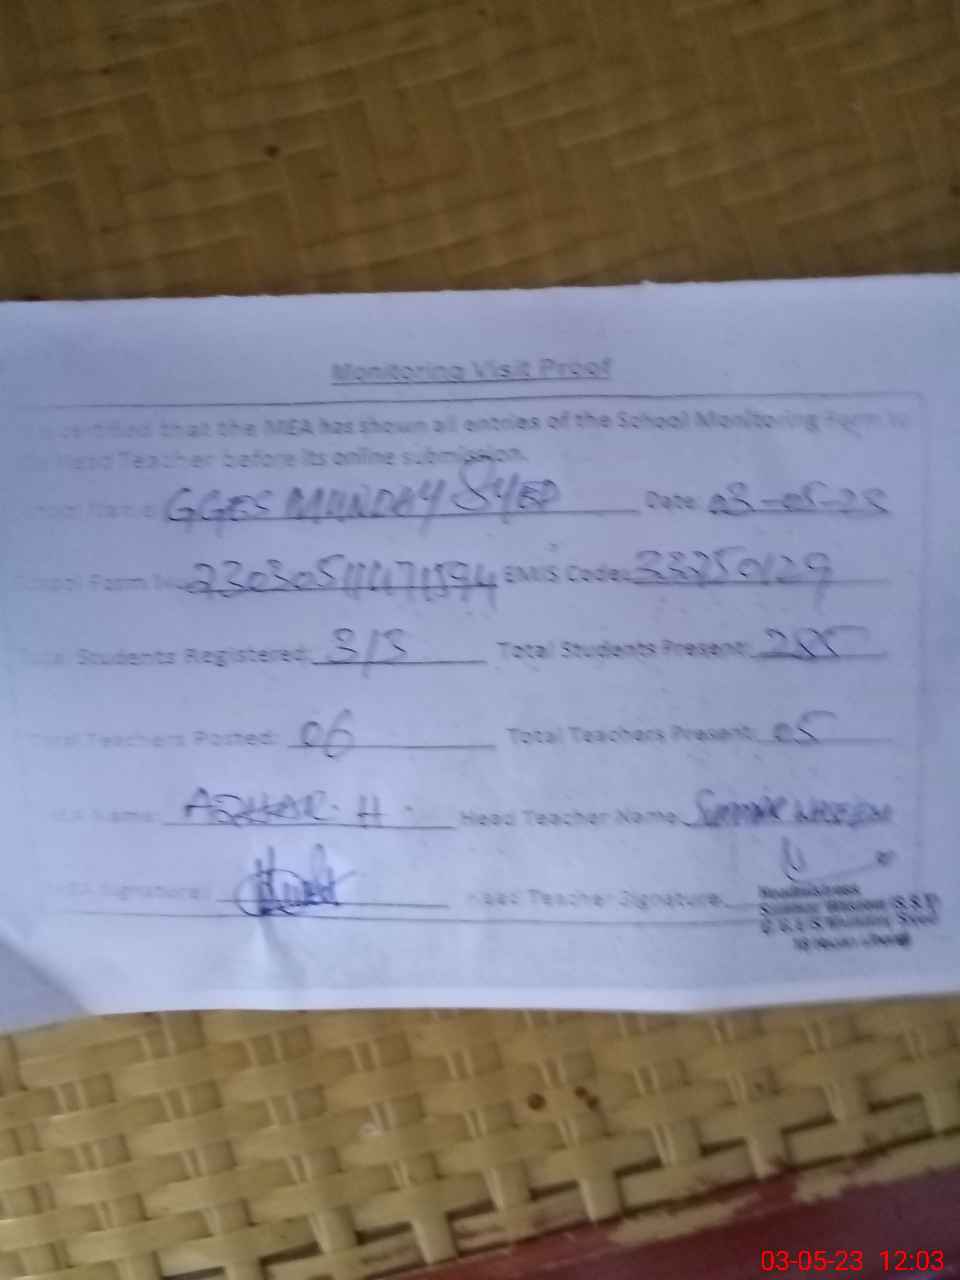 Monitoring Visit Proof
is certified that the MEA has shown all entries of the School Monitoring Form to
Head Teacher before its online submission.
Name: GGES MUNDAY SYED Date: 03-05-23
School Form No. EMIS Code:
Total Students Registered: 313 Total Students Present: 255
Total Teachers Posted: 06 Total Teachers Present: 05
Name: AZHAR. H Head Teacher Name
MEA Signature: Head Teacher Signature:
Headmistress
03-05-23 12:03